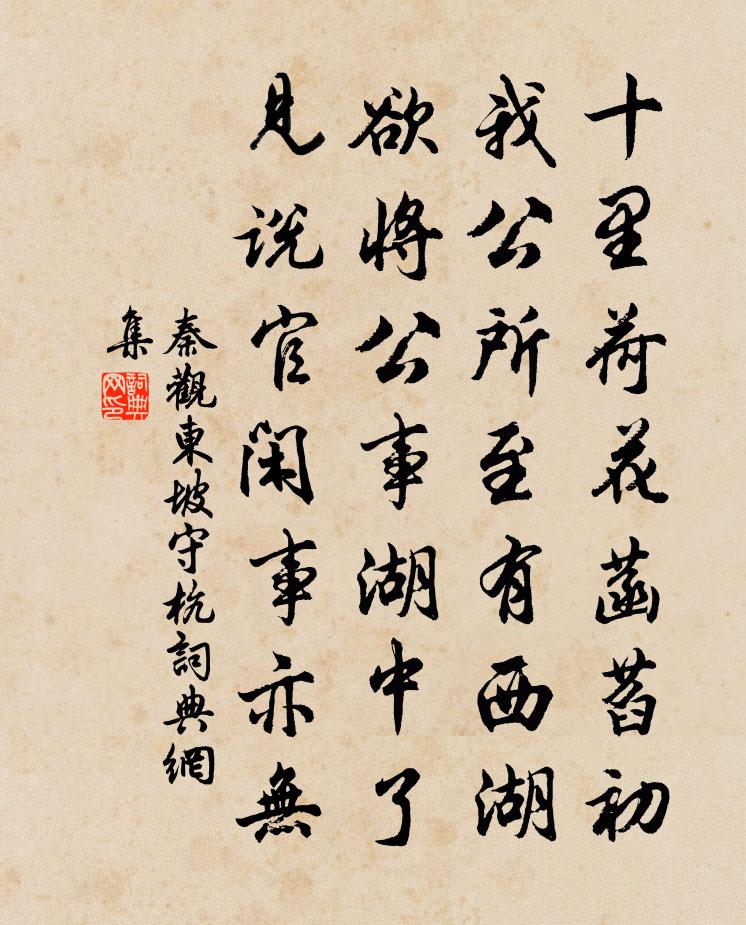 十里荷花菡萏初
我公所至有西湖
欲將公事湖中了
見說官閑事亦無
秦觀東坡守杭詞典網
集
詞典网印